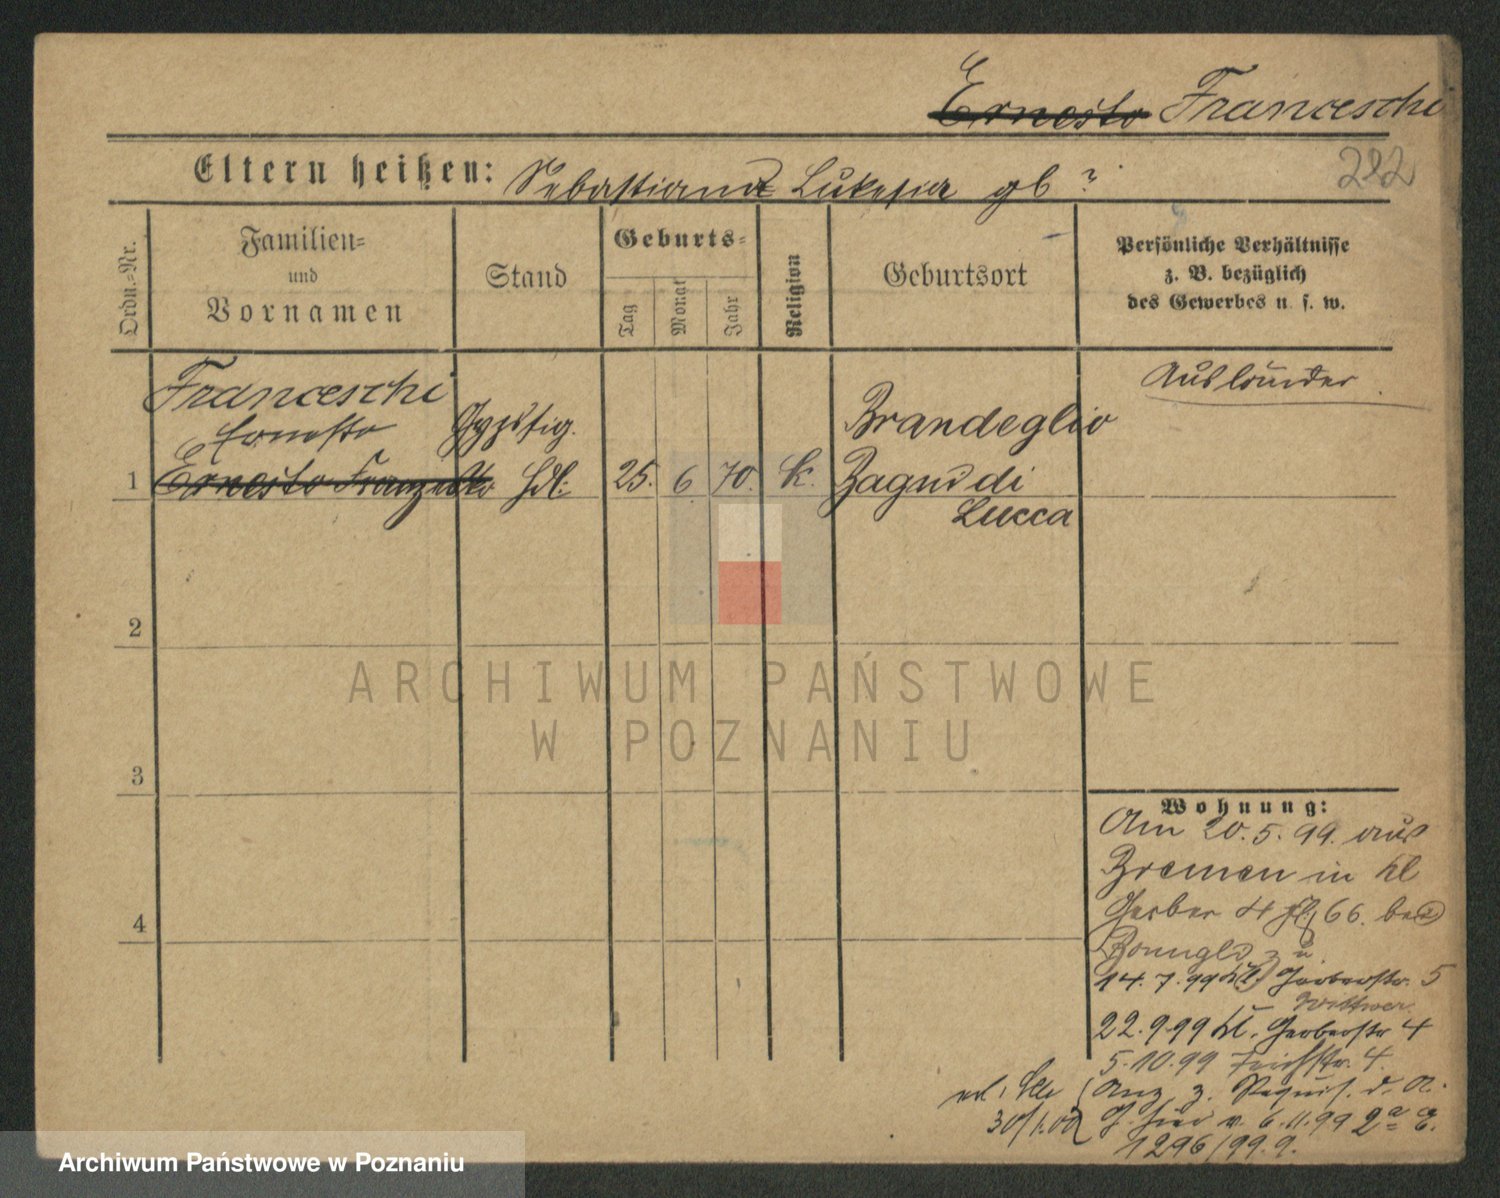 Ernesto Franceschi
282
Eltern heißen: Sebastiana Lukesia gb ?
Ordn.-Nr.
Familien-
und
Vornamen
Stand
Geburts-
Tag
Monat
Jahr
Religion
Geburtsort
Persönliche Verhältnisse
z. B. bezüglich
des Gewerbes u. s. w.
Ausländer
Franceschi
Ernesto
1 Ernesto
Gypsfig.
Hdl:
25. 6 70. K.
Brandeglio
Bagni di
Lucca
2
3
4
Wohnung:
Am 20.5.99. aus
Bremen in Kl
Gerber 4 66. bei
14.7.99 Kl. Gerberstr. 5
Wittwer
22.9.99 Kl. Gerberstr 4
5.10.99 Teichstr. 4.
Anz. z. Requis. d. A.
30/1.00
G. hier v. 6.11.99
1296/99.9.
ARCHIWUM PAŃSTWOWE
W POZNANIU
Archiwum Państwowe w Poznaniu